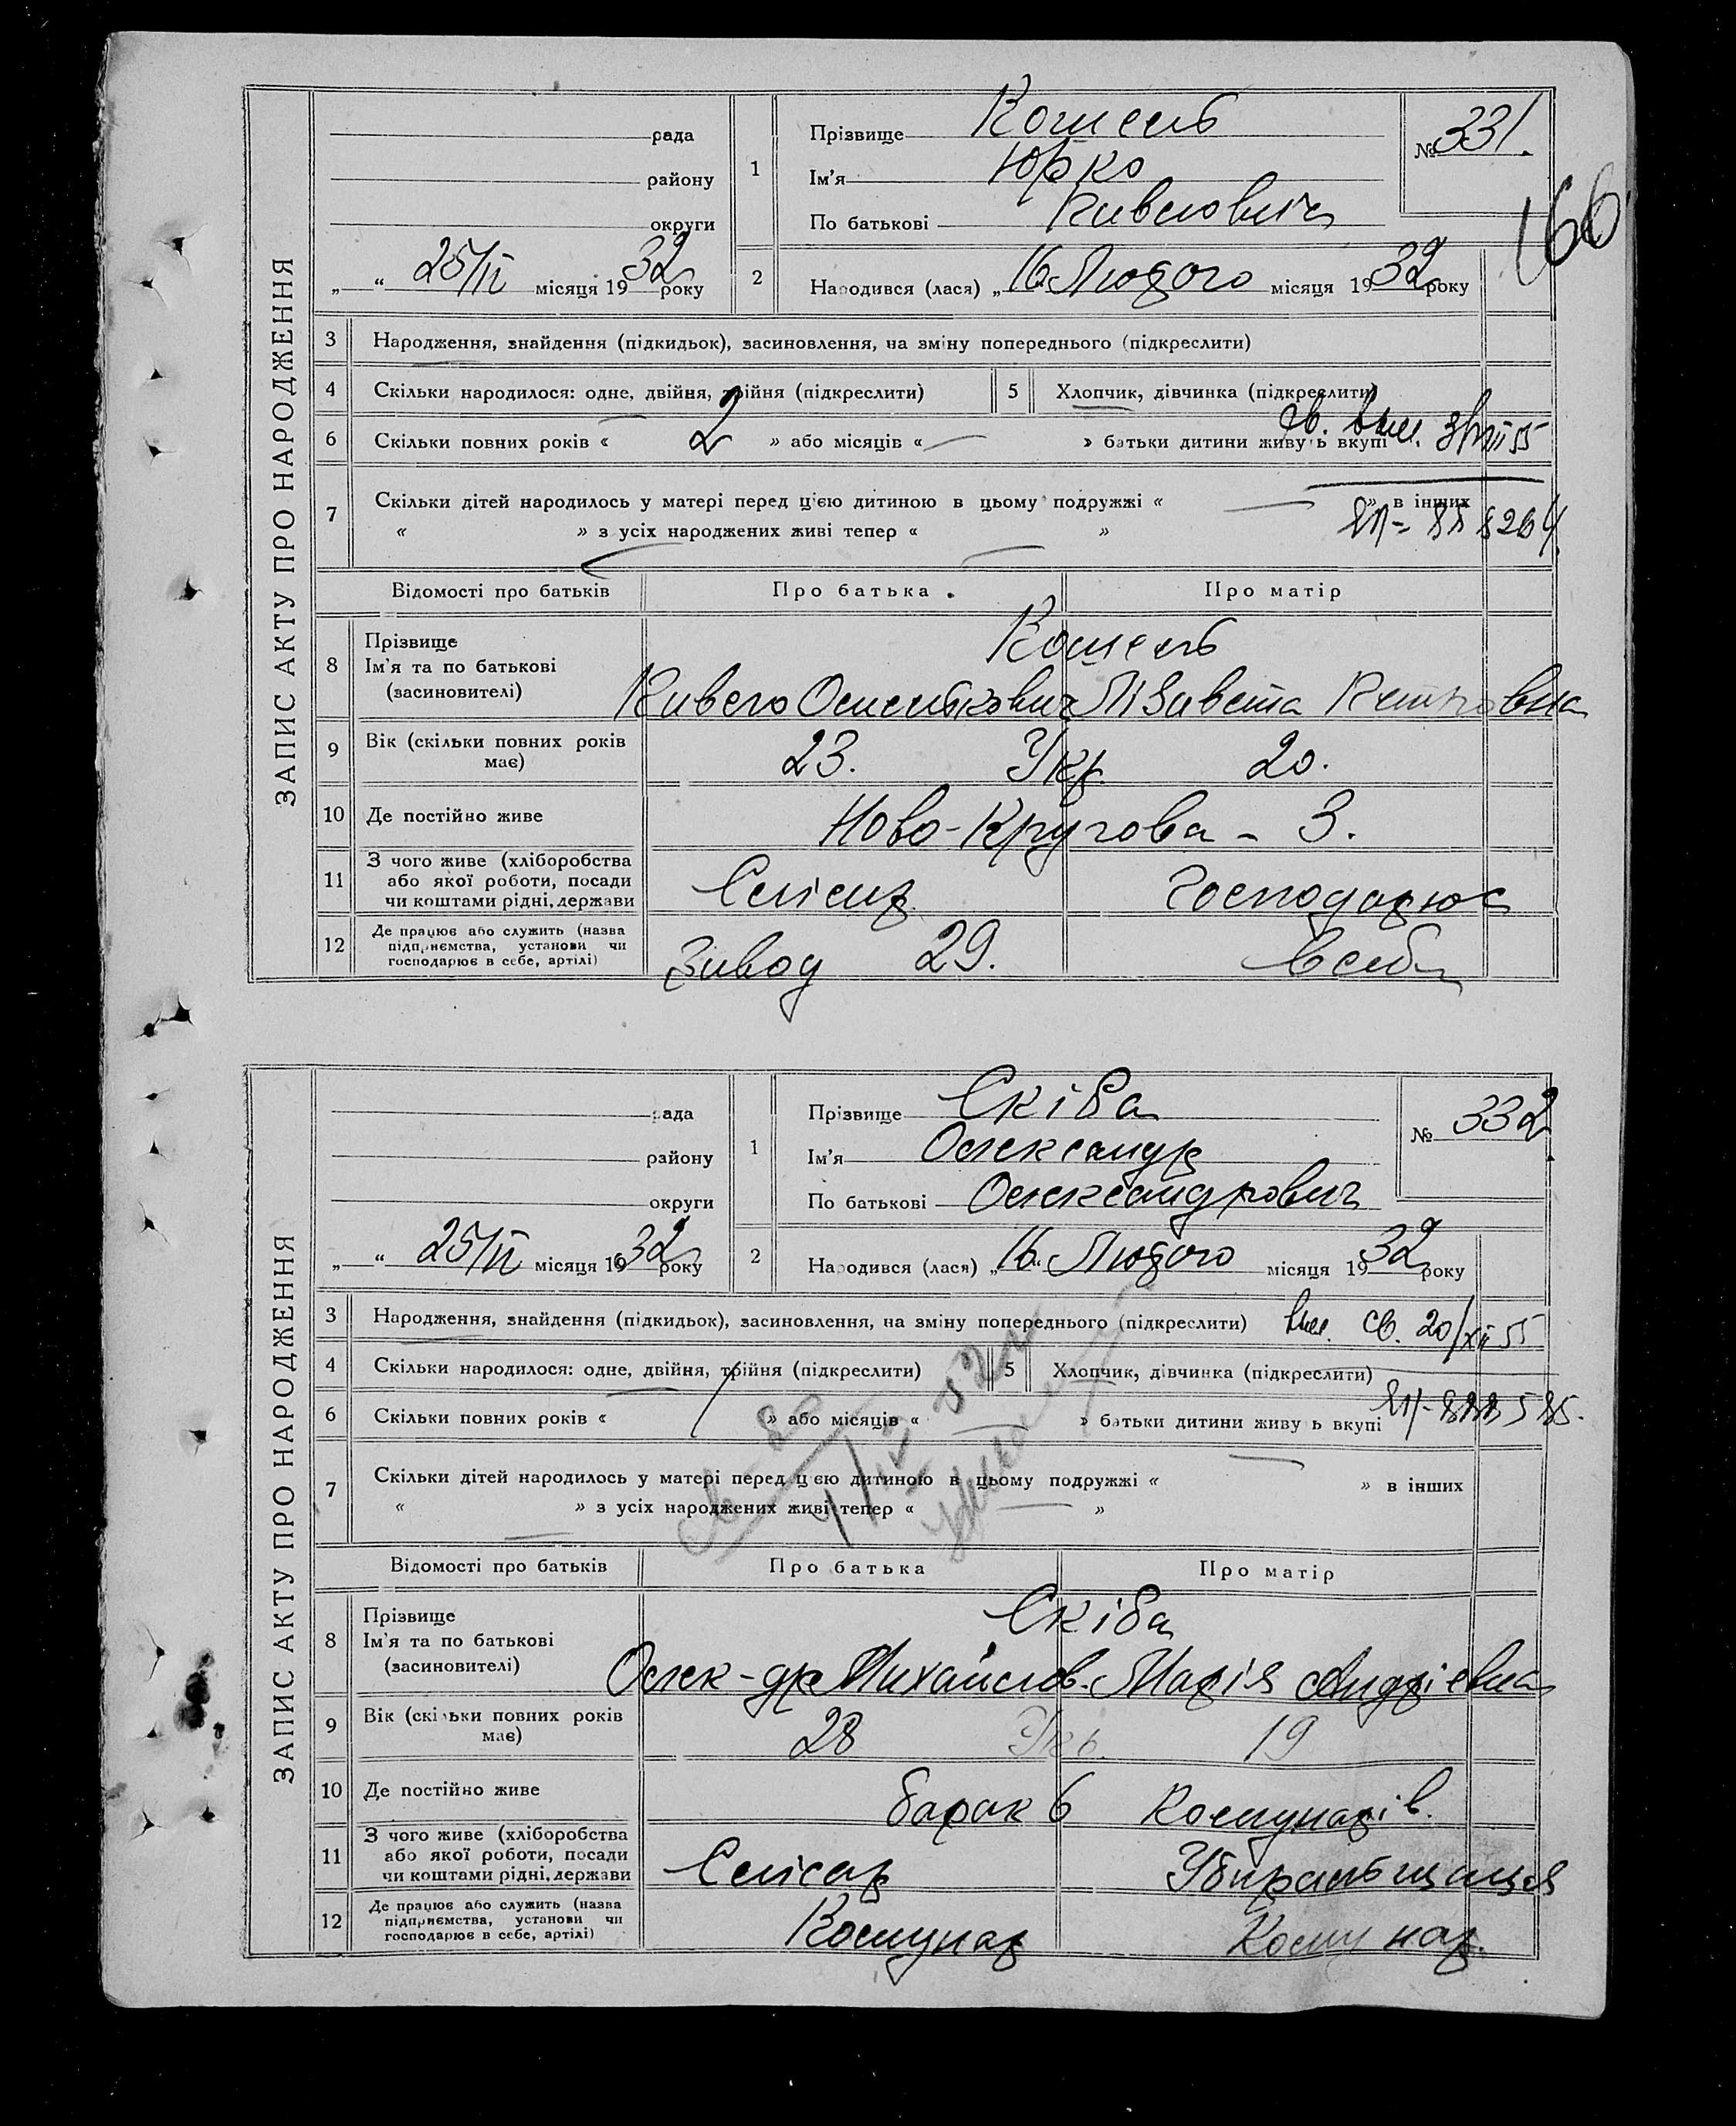 ЗАПИС АКТУ ПРО НАРОДЖЕННЯ
рада
району
округи
„ “ 25/II місяця 1932 року
1 Прізвище Кошель
Ім'я Юрко
По батькові
№ 331.
160
2 Народився (лася) „16 Лютого місяця 1932 року
3 Народження, знайдення (підкидьок), засиновлення, на зміну попереднього (підкреслити)
4 Скільки народилося: одне, двійня, трійня (підкреслити) 5 Хлопчик, дівчинка (підкреслити)
6 Скільки повних років « 2 » або місяців « — » батьки дитини живуть вкупі
7 Скільки дітей народилось у матері перед цією дитиною в цьому подружжі « — » в інших
« » з усіх народжених живі тепер « — »
Відомості про батьків Про батька Про матір
8 Прізвище Кошель
Ім'я та по батькові
(засновителі) Лізавета
9 Вік (скільки повних років має) 23. Укр. 20.
10 Де постійно живе Ново-Кругова - 3.
11 З чого живе (хліборобства або якої роботи, посади чи коштами рідні, держави Слісар Господарює
12 Де працює або служить (назва підприємства, установи чи господарює в себе, артілі) Завод 29. в себе
ЗАПИС АКТУ ПРО НАРОДЖЕННЯ
рада
району
округи
„ “ 25/II місяця 1932 року
1 Прізвище Скіба
Ім'я Олександр
По батькові Олександрович
№ 332
2 Народився (лася) „16“ Лютого місяця 1932 року
3 Народження, знайдення (підкидьок), засиновлення, на зміну попереднього (підкреслити) св. 20/XII 55
4 Скільки народилося: одне, двійня, трійня (підкреслити) 5 Хлопчик, дівчинка (підкреслити)
6 Скільки повних років « / » або місяців « — » батьки дитини живуть вкупі
7 Скільки дітей народилось у матері перед цією дитиною в цьому подружжі « — » в інших
« » з усіх народжених живі тепер « — »
Відомості про батьків Про батька Про матір
8 Прізвище Скіба
Ім'я та по батькові
(засиновителі) Олек-др Михайлов. Марія Андріевна
9 Вік (скільки повних років має) 28 Укр. 19
10 Де постійно живе барак 6 Комунарів.
11 З чого живе (хліборобства або якої роботи, посади чи коштами рідні, держави Слісар Убиральщиця
12 Де працює або служить (назва підприємства, установи чи господарює в себе, артілі) Комунар Комунар.